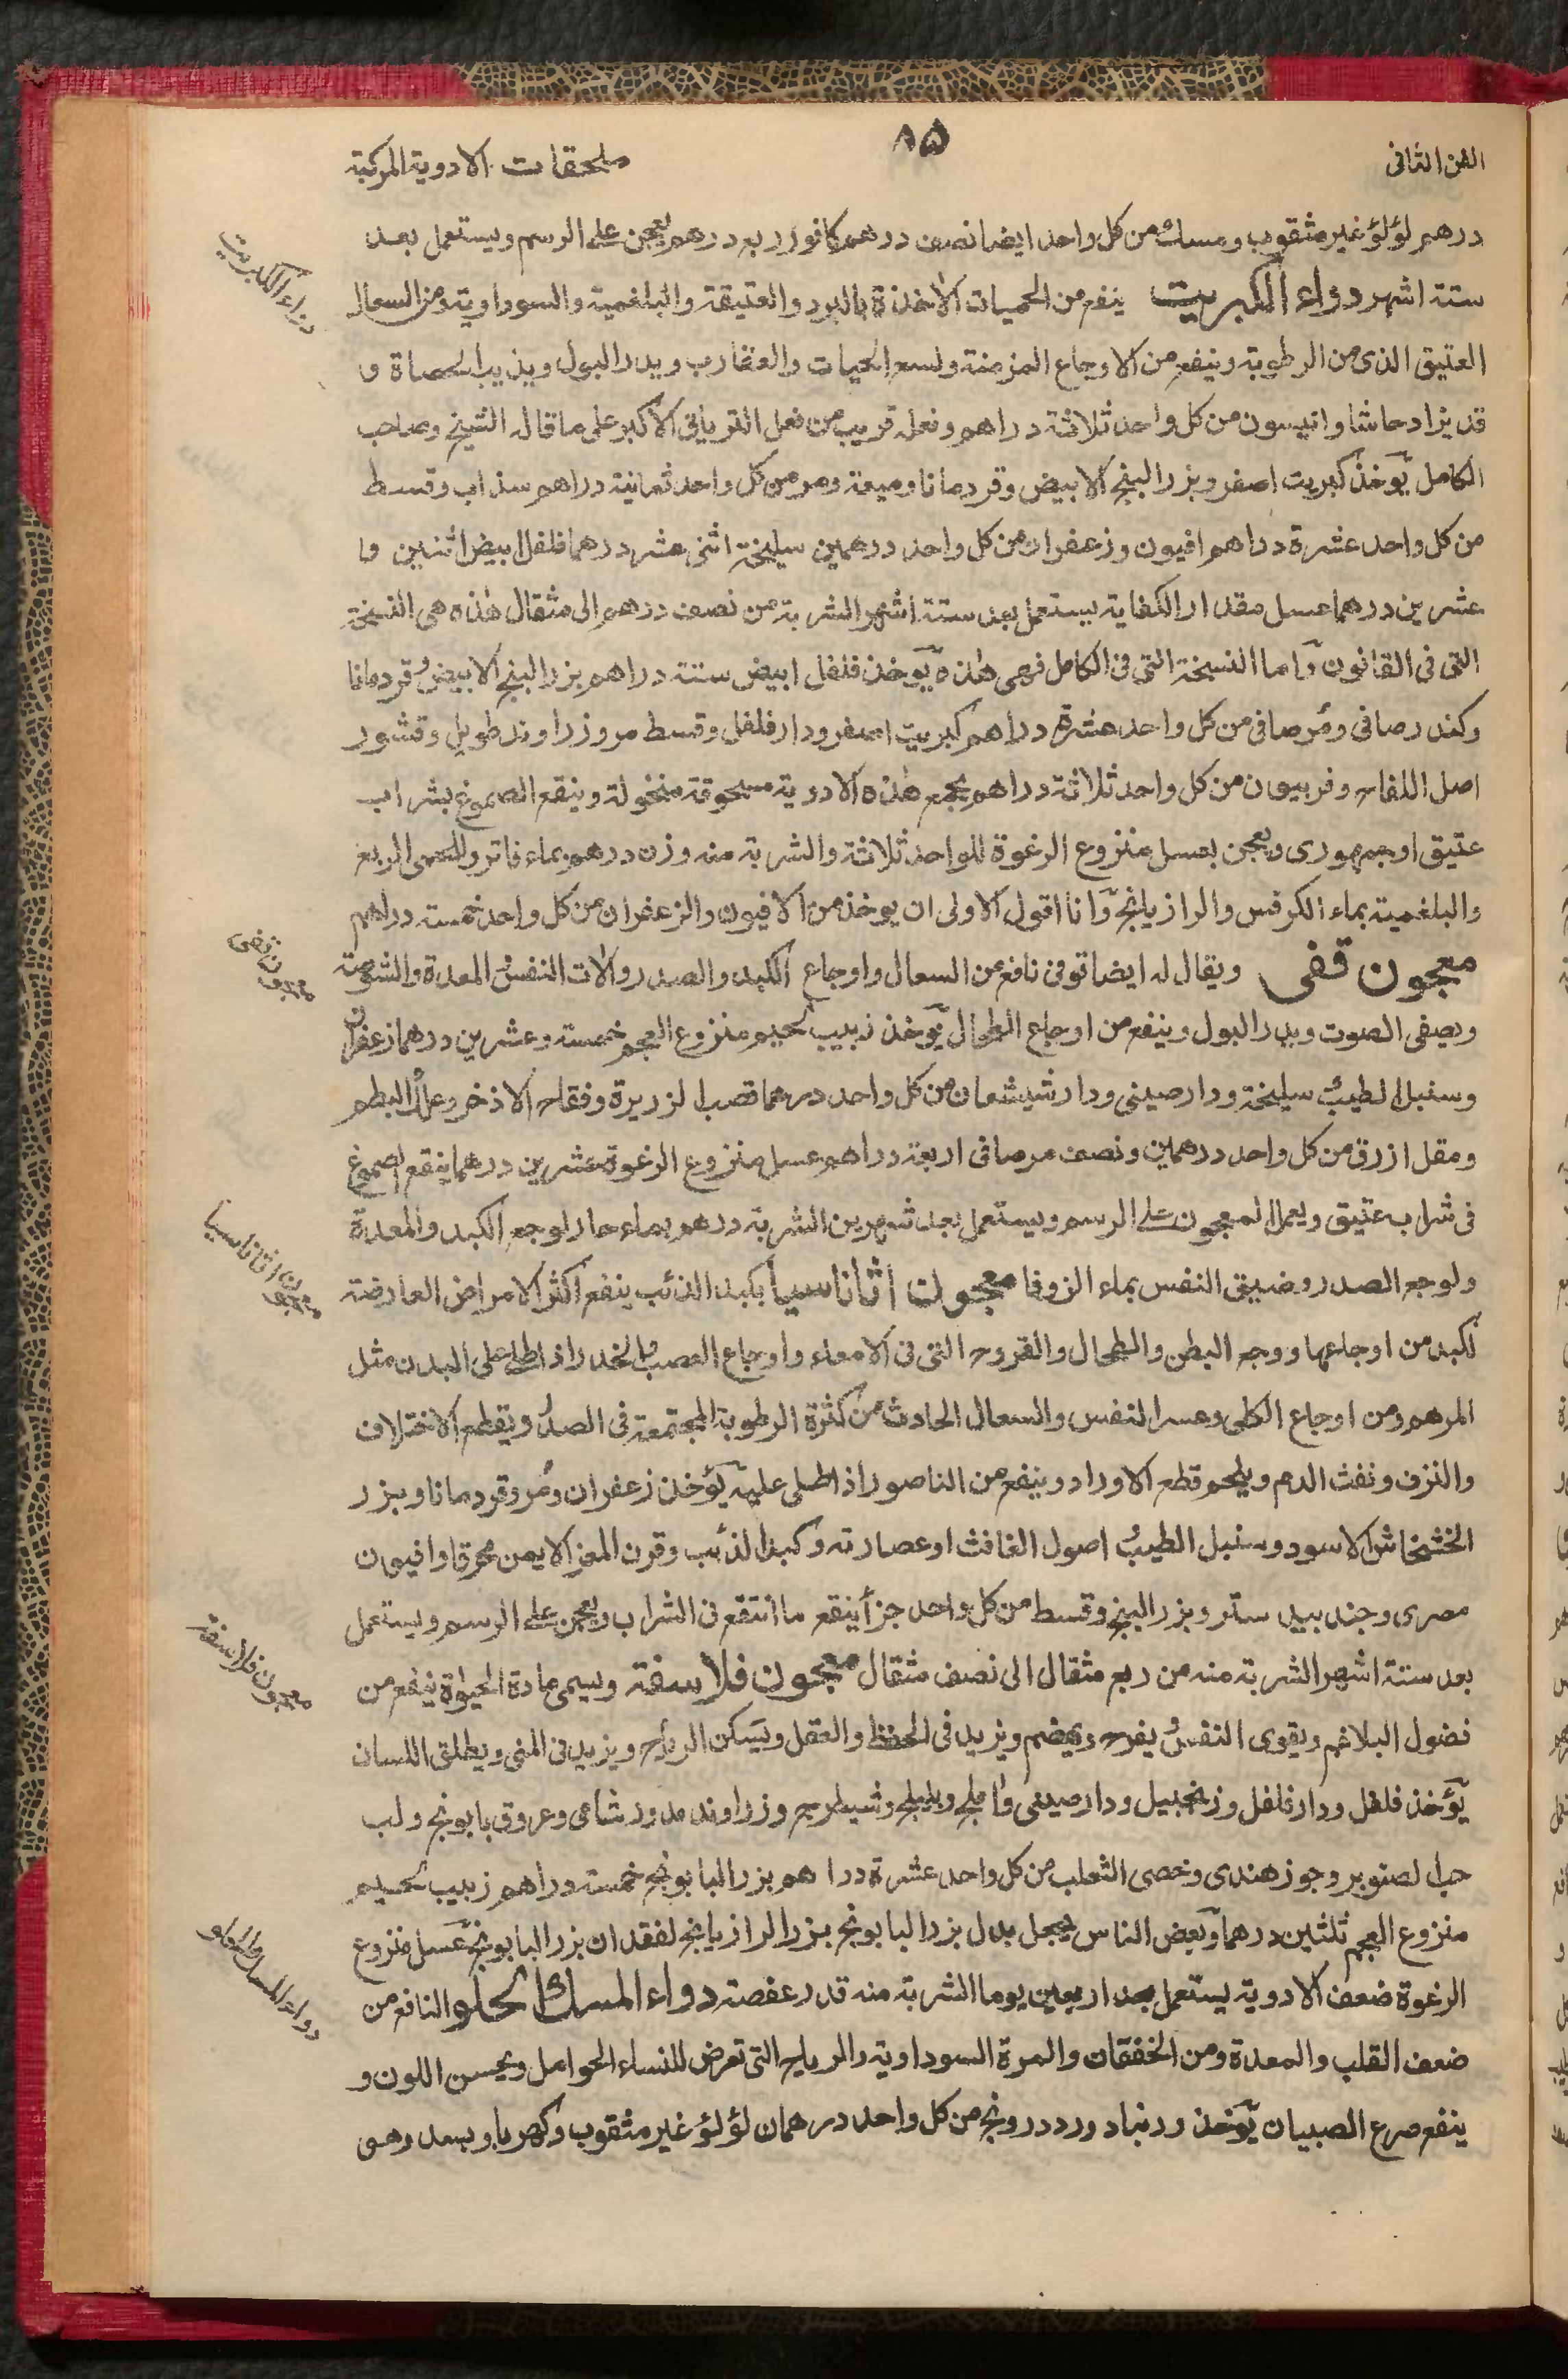 الفن الثانی
۸۵
ملحقات الادوية المركبة
درهم لؤلؤ غير مثقوب ومسك من كل واحد ايضا نصف درهم كافور ربع درهم يعجن على الرسم ويستعمل بعد
ستة اشهر دواء الكبريت ينفع من الحميات الاخذة بالبرد والعتيقة والبلغمية والسوداوية ومن السعال
العتيق الذى من الرطوبة وينفع من الاوجاع المزمنة ولسع الحيات والعقارب ويدر البول ويذيب الحصاة و
قد يزاد حاشا وانيسون من كل واحد ثلاثة دراهم وفعله قريب من فعل الترياق الاكبر على ما قال الشيخ وصاحب
الكامل يؤخذ كبريت اصفر وبزر البنج الابيض وقردمانا وميعة ومر من كل واحد ثمانية دراهم سذاب وقسط
من كل واحد عشرة دراهم افيون وزعفران من كل واحد درهمين سليخة اثنى عشر درهما فلفل ابيض اثنين و
عشرين درهما عسل مقدار الكفاية يستعمل بعد ستة اشهر الشربة من نصف درهم الى مثقال هذه هى النسخة
التى فى القانون واما النسخة التى فى الكامل فهى هذه يؤخذ فلفل ابيض ستة دراهم بزر البنج الابيض وقردمانا
وكندر صافى ومر صافى من كل واحد عشرة دراهم كبريت اصفر ودار فلفل وقسط مر وزراوند طويل وقشور
اصل اللفاح وفربيون من كل واحد ثلاثة دراهم يجمع هذه الادوية مسحوقة منخولة وينقع الصموغ بشراب
عتيق او جمهورى ويعجن بعسل منزوع الرغوة للواحد ثلاثة والشربة منه وزن درهم بماء فاتر وللحمى الربع
والبلغمية بماء الكرفس والرازيانج وانا اقول الاولى ان يوخذ من الافيون والزعفران من كل واحد خمسة دراهم
معجون قفى ويقال له ايضا توفى نافع من السعال واوجاع الكبد والصدر والات النفس والمعدة والشوصة
ويصفى الصوت ويدر البول وينفع من اوجاع الطحال يؤخذ زبيب لحيم منزوع العجم خمسة وعشرين درهما زعفران
وسنبل الطيب وسليخة ودارصينى ودارشيشعان من كل واحد درهما قصب الزريرة وفقاح الاذخر وعلك البطم
ومقل ازرق من كل واحد درهمين ونصف مر صافى اربعة دراهم عسل منزوع الرغوة عشرين درهما ينقع الصموغ
فى شراب عتيق ويعمل المعجون على الرسم ويستعمل بعد شهرين الشربة درهم بماء حار لوجع الكبد والمعدة
ولوجع الصدر وضيق النفس بماء الزوفا معجون اثاناسيا بكبد الذئب ينفع اكثر الامراض العارضة
لكبد من اوجاعها ووجع البطن والطحال والقروح التى فى الامعاء واوجاع العصب والخدر اذا طلى على البدن مثل
المرهم ومن اوجاع الكلى وعسر النفس والسعال الحادث من كثرة الرطوبة المجتمعة فى الصدر ويقطع الاختلاف
والنزف ونفث الدم ويلحم قطع الاوراد وينفع من الناصور اذا طلى عليه يؤخذ زعفران ومر وقردمانا وبزر
الخشخاش الاسود وسنبل الطيب واصول الغافث او عصارته وكبد الذئب وقرن المعز الايمن محرقا وافيون
مصرى وجند بيدستر وبزر البنج وقسط من كل واحد جزأ ينقع ما انتقع فى الشراب ويعجن على الرسم ويستعمل
بعد ستة اشهر الشربة منه من ربع مثقال الى نصف مثقال معجون فلاسفة ويسمى مادة الحيواة ينفع من
فضول البلاغم ويقوى النفس ويفرح ويهضم ويزيد فى الحفظ والعقل ويسكن الرياح ويزيد فى المنى ويطلق اللسان
يؤخذ فلفل ودار فلفل وزنجبيل ودارصينى واملج وبليلج وشيطرج وزراوند مدور شامى وعروق بابونج ولب
حب الصنوبر وجوز هندى وخصى الثعلب من كل واحد عشرة دراهم بزر البابونج خمسة دراهم زبيب لحيم
منزوع العجم ثلثين درهما وبعض الناس يجعل بدل بزر البابونج بزر الرازيانج لفقدان بزر البابونج عسل منزوع
الرغوة ضعف الادوية يستعمل بعد اربعين يوما الشربة منه قدر عفصة دواء المسك الحلو النافع من
ضعف القلب والمعدة ومن الخفقان والمرة السوداوية والرياح التى تعرض للنساء الحوامل ويحسن اللون و
ينفع صرع الصبيان يؤخذ زرنباد ودرونج من كل واحد درهمان لؤلؤ غير مثقوب وكهربا وبسد وهى
دواء الكبريت
معجون قفى
معجون اثاناسيا
معجون فلاسفة
دواء المسك الحلو